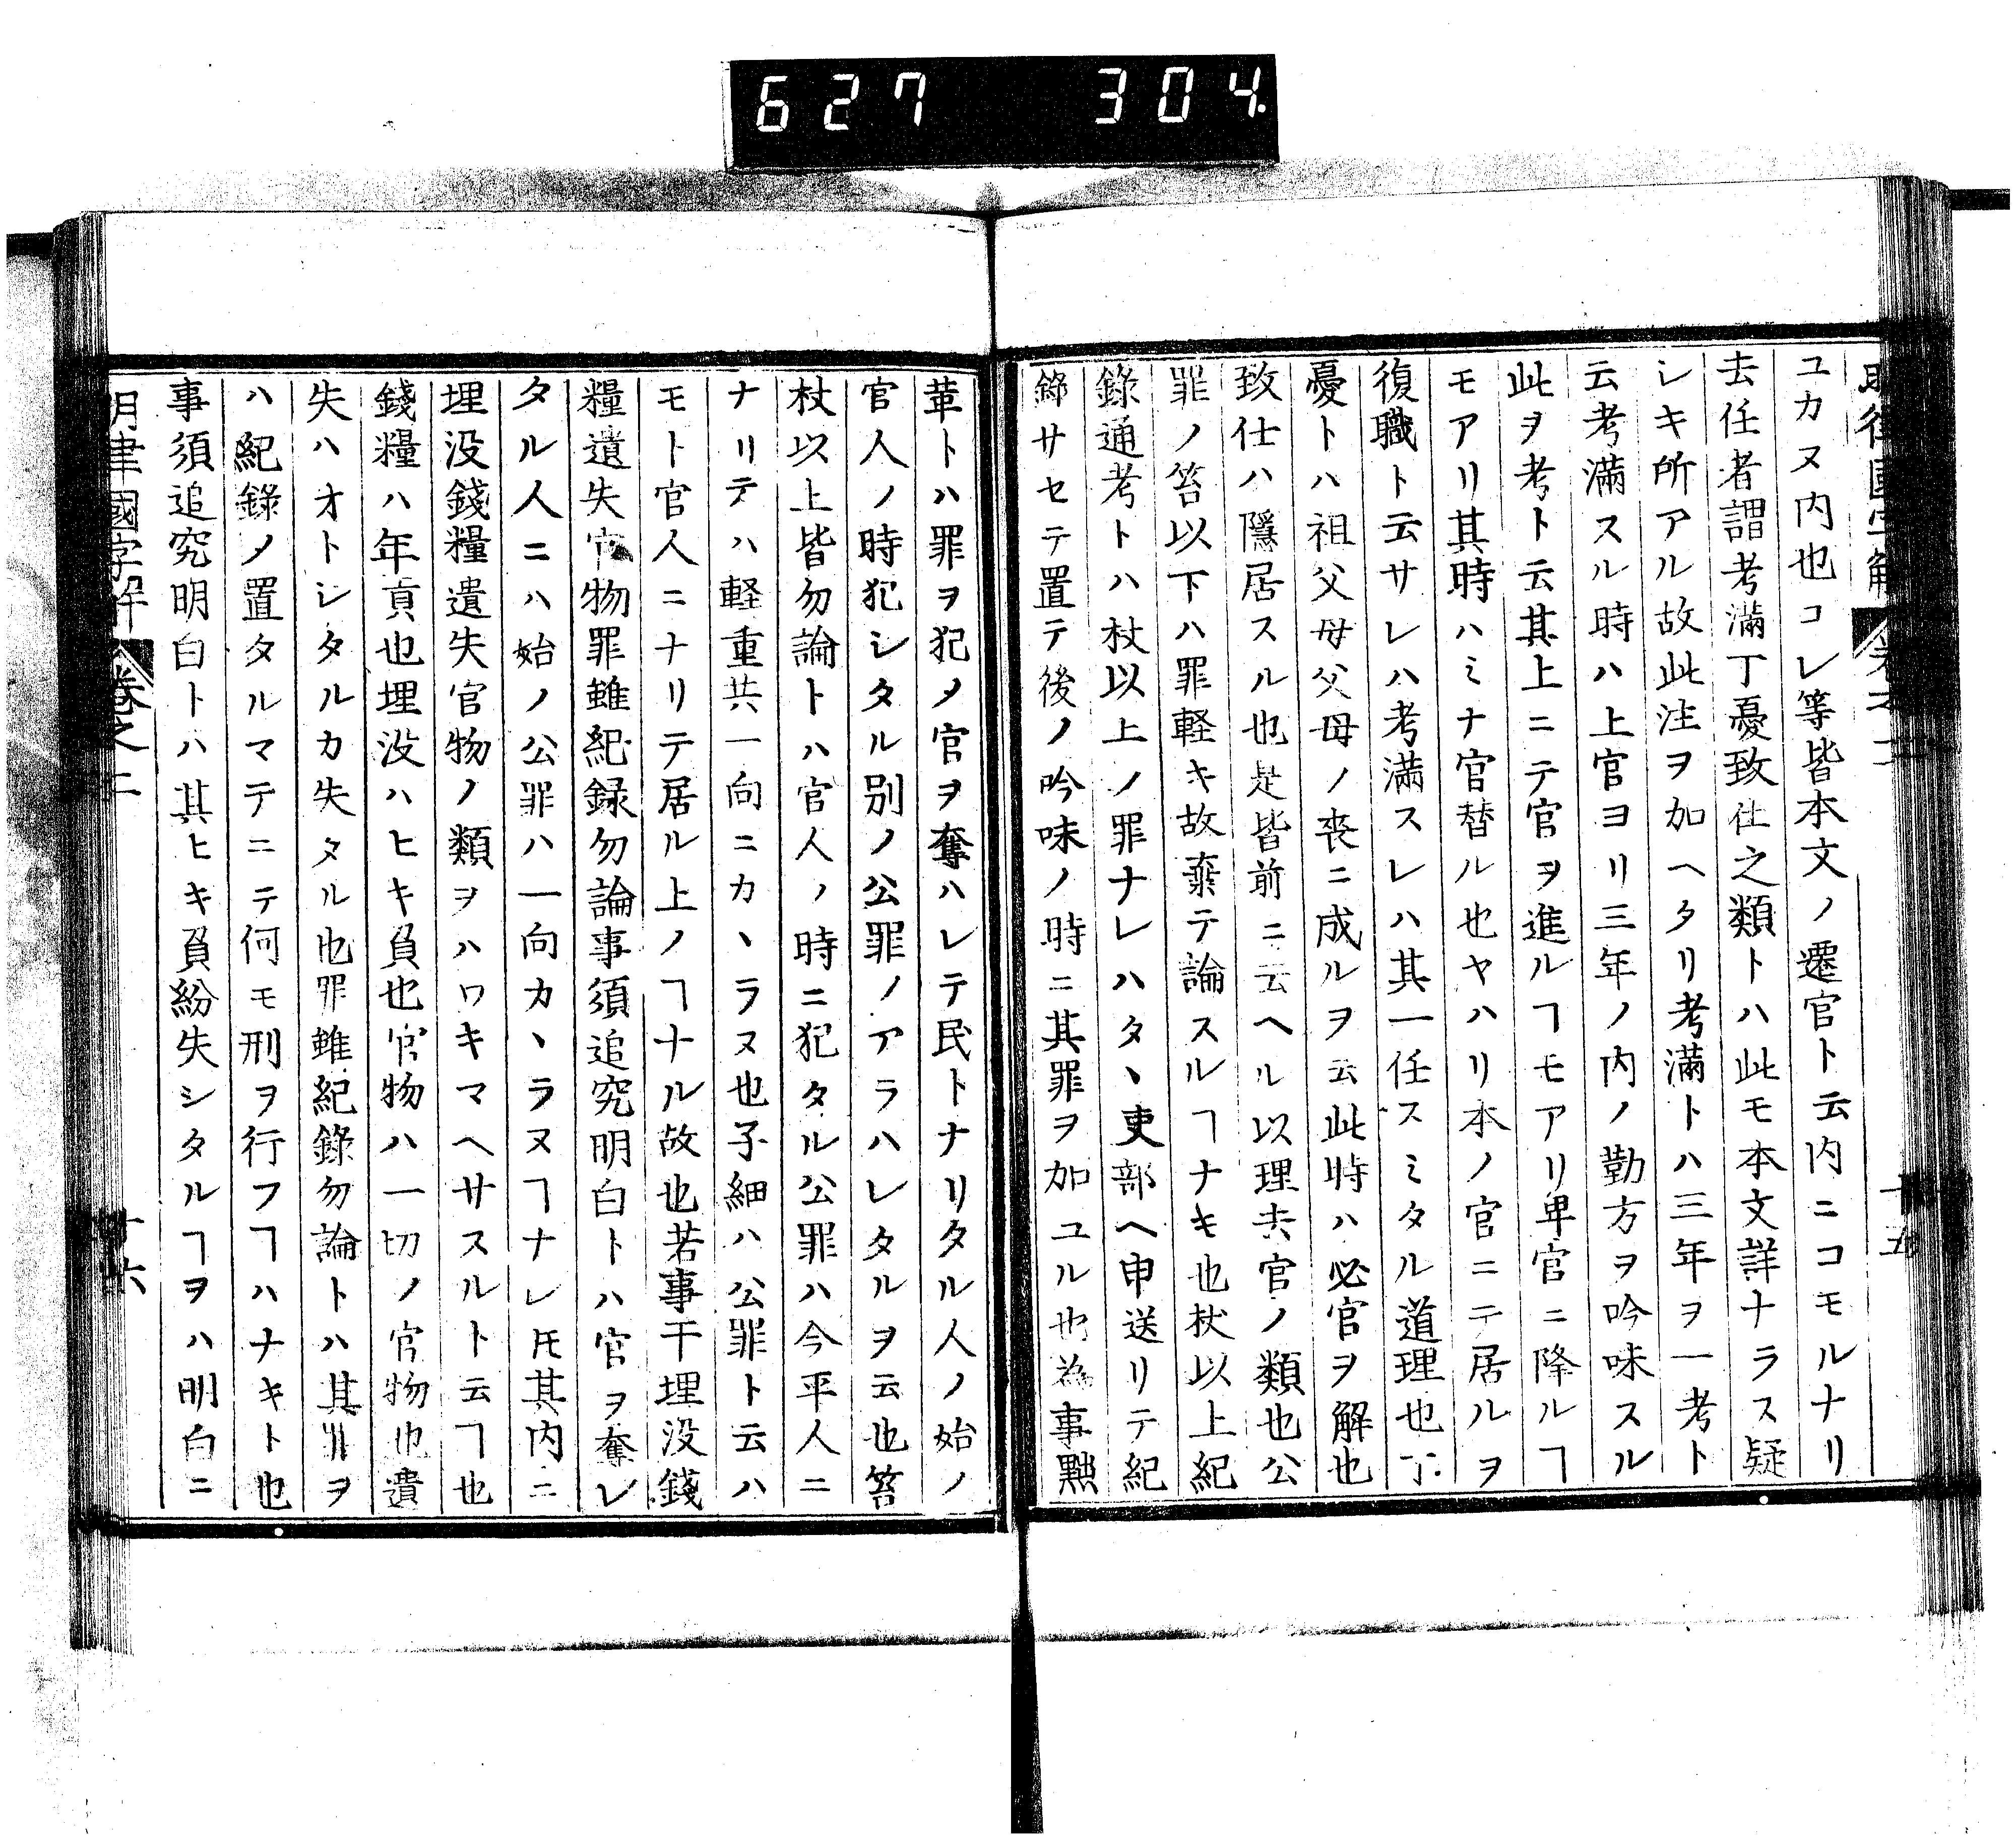 627 304
明律國字解 卷之二 十五
ユカヌ内也コレ等皆本文ノ遷官ト云内ニコモルナリ
去任者謂考滿丁憂致仕之類トハ此モ本文詳ナラス疑
レキ所アル故此注ヲ加ヘタリ考滿トハ三年ヲ一考ト
云考滿スル時ハ上官ヨリ三年ノ内ノ勤方ヲ吟味スル
此ヲ考ト云其上ニテ官ヲ進ルヿモアリ卑官ニ降ルヿ
モアリ其時ハミナ官替ル也ヤハリ本ノ官ニテ居ルヲ
復職ト云サレハ考満スレハ其一任スミタル道理也丁
憂トハ祖父母父母ノ喪ニ成ルヲ云此時ハ必官ヲ解也
致仕ハ隱居スル也是皆前ニ云ヘル以理去官ノ類也公
罪ノ笞以下ハ罪軽キ故棄テ論スルヿナキ也杖以上紀
錄通考トハ杖以上ノ罪ナレハタヽ吏部ヘ申送リテ紀
錄サセテ置テ後ノ吟味ノ時ニ其罪ヲ加ユル也為事黜
革トハ罪ヲ犯メ官ヲ奪ハレテ民トナリタル人ノ始ノ
官人ノ時犯シタル別ノ公罪ノアラハレタルヲ云也笞
杖以上皆勿論トハ官人ノ時ニ犯タル公罪ハ今平人ニ
ナリテハ軽重共一向ニカヽラヌ也子細ハ公罪ト云ハ
モト官人ニナリテ居ル上ノヿナル故也若事干埋没錢
糧遺失官物罪雖紀録勿論事須追究明白トハ官ヲ奪レ
タル人ニハ始ノ公罪ハ一向カヽラヌヿナレ𪜈其内ニ
埋没錢糧遺失官物ノ類ヲハワキマヘサスルト云ヿ也
錢糧ハ年貢也埋没ハヒキ負也官物ハ一切ノ官物也遺
失ハオトシタルカ失タル也罪雖紀錄勿論トハ其罪ヲ
ハ紀錄メ置タルマテニテ何モ刑ヲ行フヿハナキト也
事須追究明白トハ其ヒキ負紛失シタルヿヲハ明白ニ
明律國字解 卷之二 十六